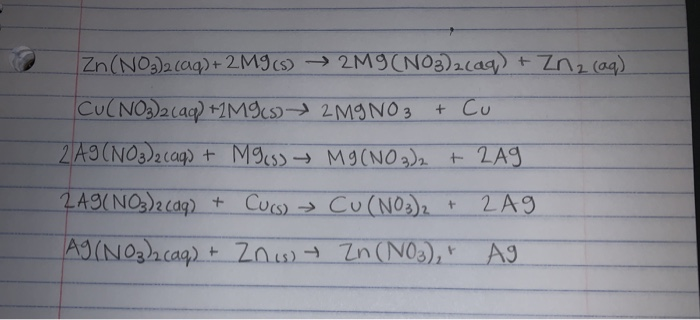 Zn(NO3)2(aq) + 2Mg(s) → 2Mg(NO3)2(aq) + Zn2(aq)
Cu(NO3)2(aq) + 2Mg(s) → 2MgNO3 + Cu
2Ag(NO3)2(aq) + Mg(s) → Mg(NO3)2 + 2Ag
2Ag(NO3)2(aq) + Cu(s) → Cu(NO3)2 + 2Ag
Ag(NO3)2(aq) + Zn(s) → Zn(NO3)2 + Ag